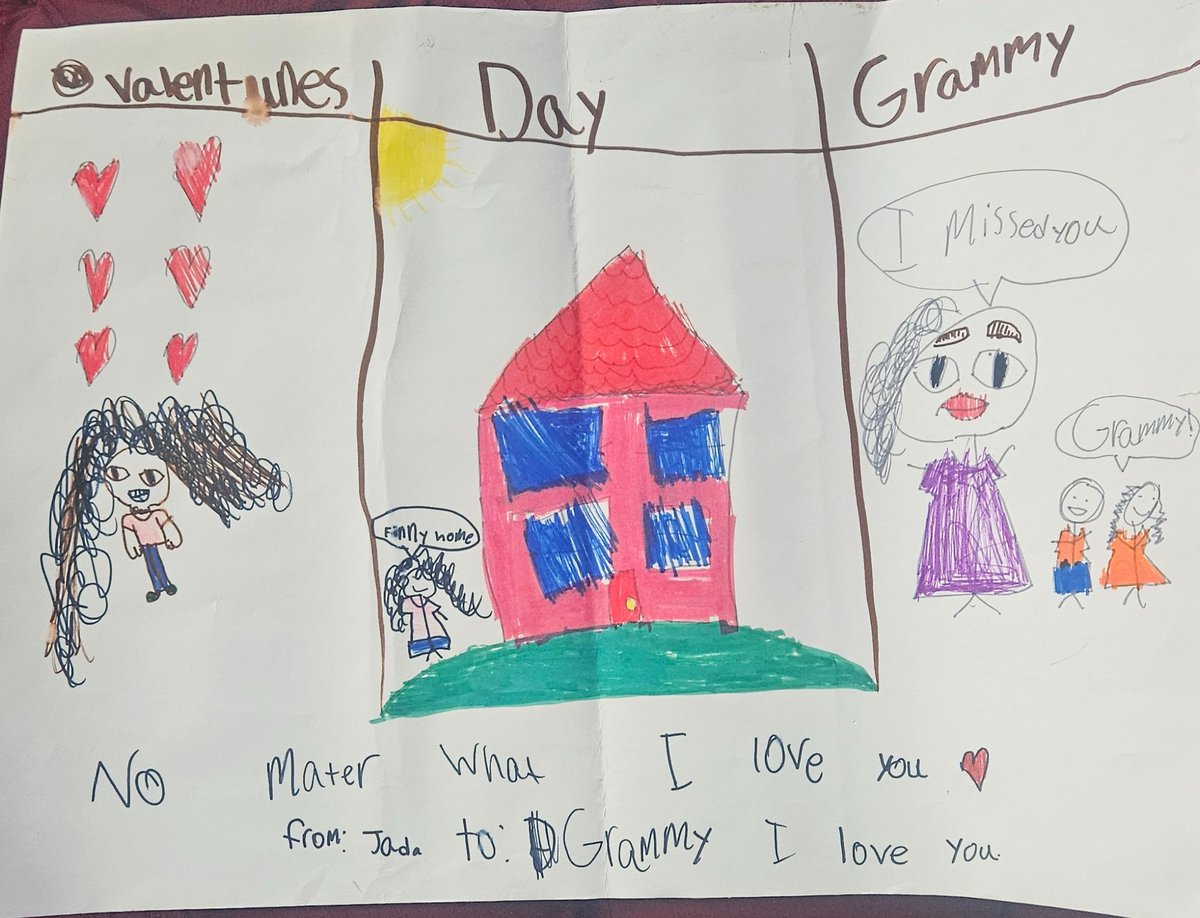 Valentines Day Grammy
I Missed you
Grammy!
Finny home
No Mater What I love you
from: Jada to: Grammy I love you.